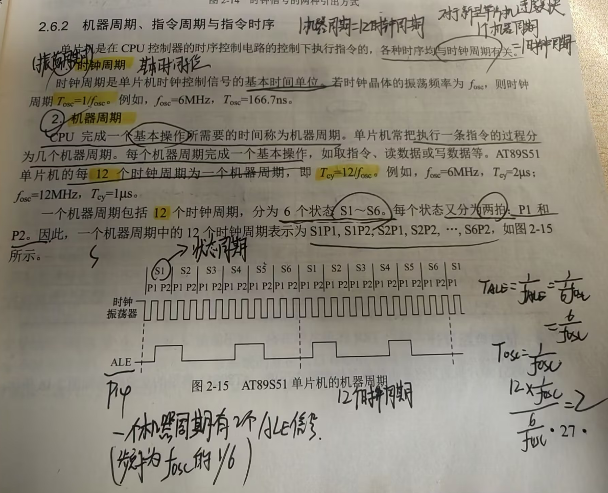 图 2-14 时钟信号的两种引出方式
2.6.2 机器周期、指令周期与指令时序
1机器周期=12时钟周期
1个机器周期
=1时钟周期
单片机是在 CPU 控制器的时序控制电路的控制下执行指令的，各种时序均与时钟周期有关。
时钟周期
基本时间单位
时钟周期是单片机时钟控制信号的基本时间单位。若时钟晶体的振荡频率为 fosc，则时钟
周期 Tosc=1/fosc。例如，fosc=6MHz，Tosc=166.7ns。
2. 机器周期
CPU 完成一个基本操作所需要的时间称为机器周期。单片机常把执行一条指令的过程分
为几个机器周期。每个机器周期完成一个基本操作，如取指令、读数据或写数据等。AT89S51
单片机的每 12 个时钟周期为一个机器周期，即 Tcy=12/fosc。例如，fosc=6MHz，Tcy=2μs；
fosc=12MHz，Tcy=1μs。
一个机器周期包括 12 个时钟周期，分为 6 个状态 S1～S6。每个状态又分为两拍：P1 和
P2。因此，一个机器周期中的 12 个时钟周期表示为 S1P1, S1P2, S2P1, S2P2, …, S6P2，如图 2-15
所示。
状态周期
S1 S2 S3 S4 S5 S6 S1 S2 S3 S4 S5 S6 S1
P1 P2 P1 P2 P1 P2 P1 P2 P1 P2 P1 P2 P1 P2 P1 P2 P1 P2 P1 P2 P1 P2 P1 P2 P1 P2
时钟
振荡器
ALE
图 2-15 AT89S51 单片机的机器周期
12个时钟周期
一个机器周期有2个ALE信号.
(频率为 fosc 的 1/6)
TALE=1/fALE=1/(1/6 fosc)
=6/fosc
Tosc=1/fosc
12×1/fosc
6/fosc
=2
·27·